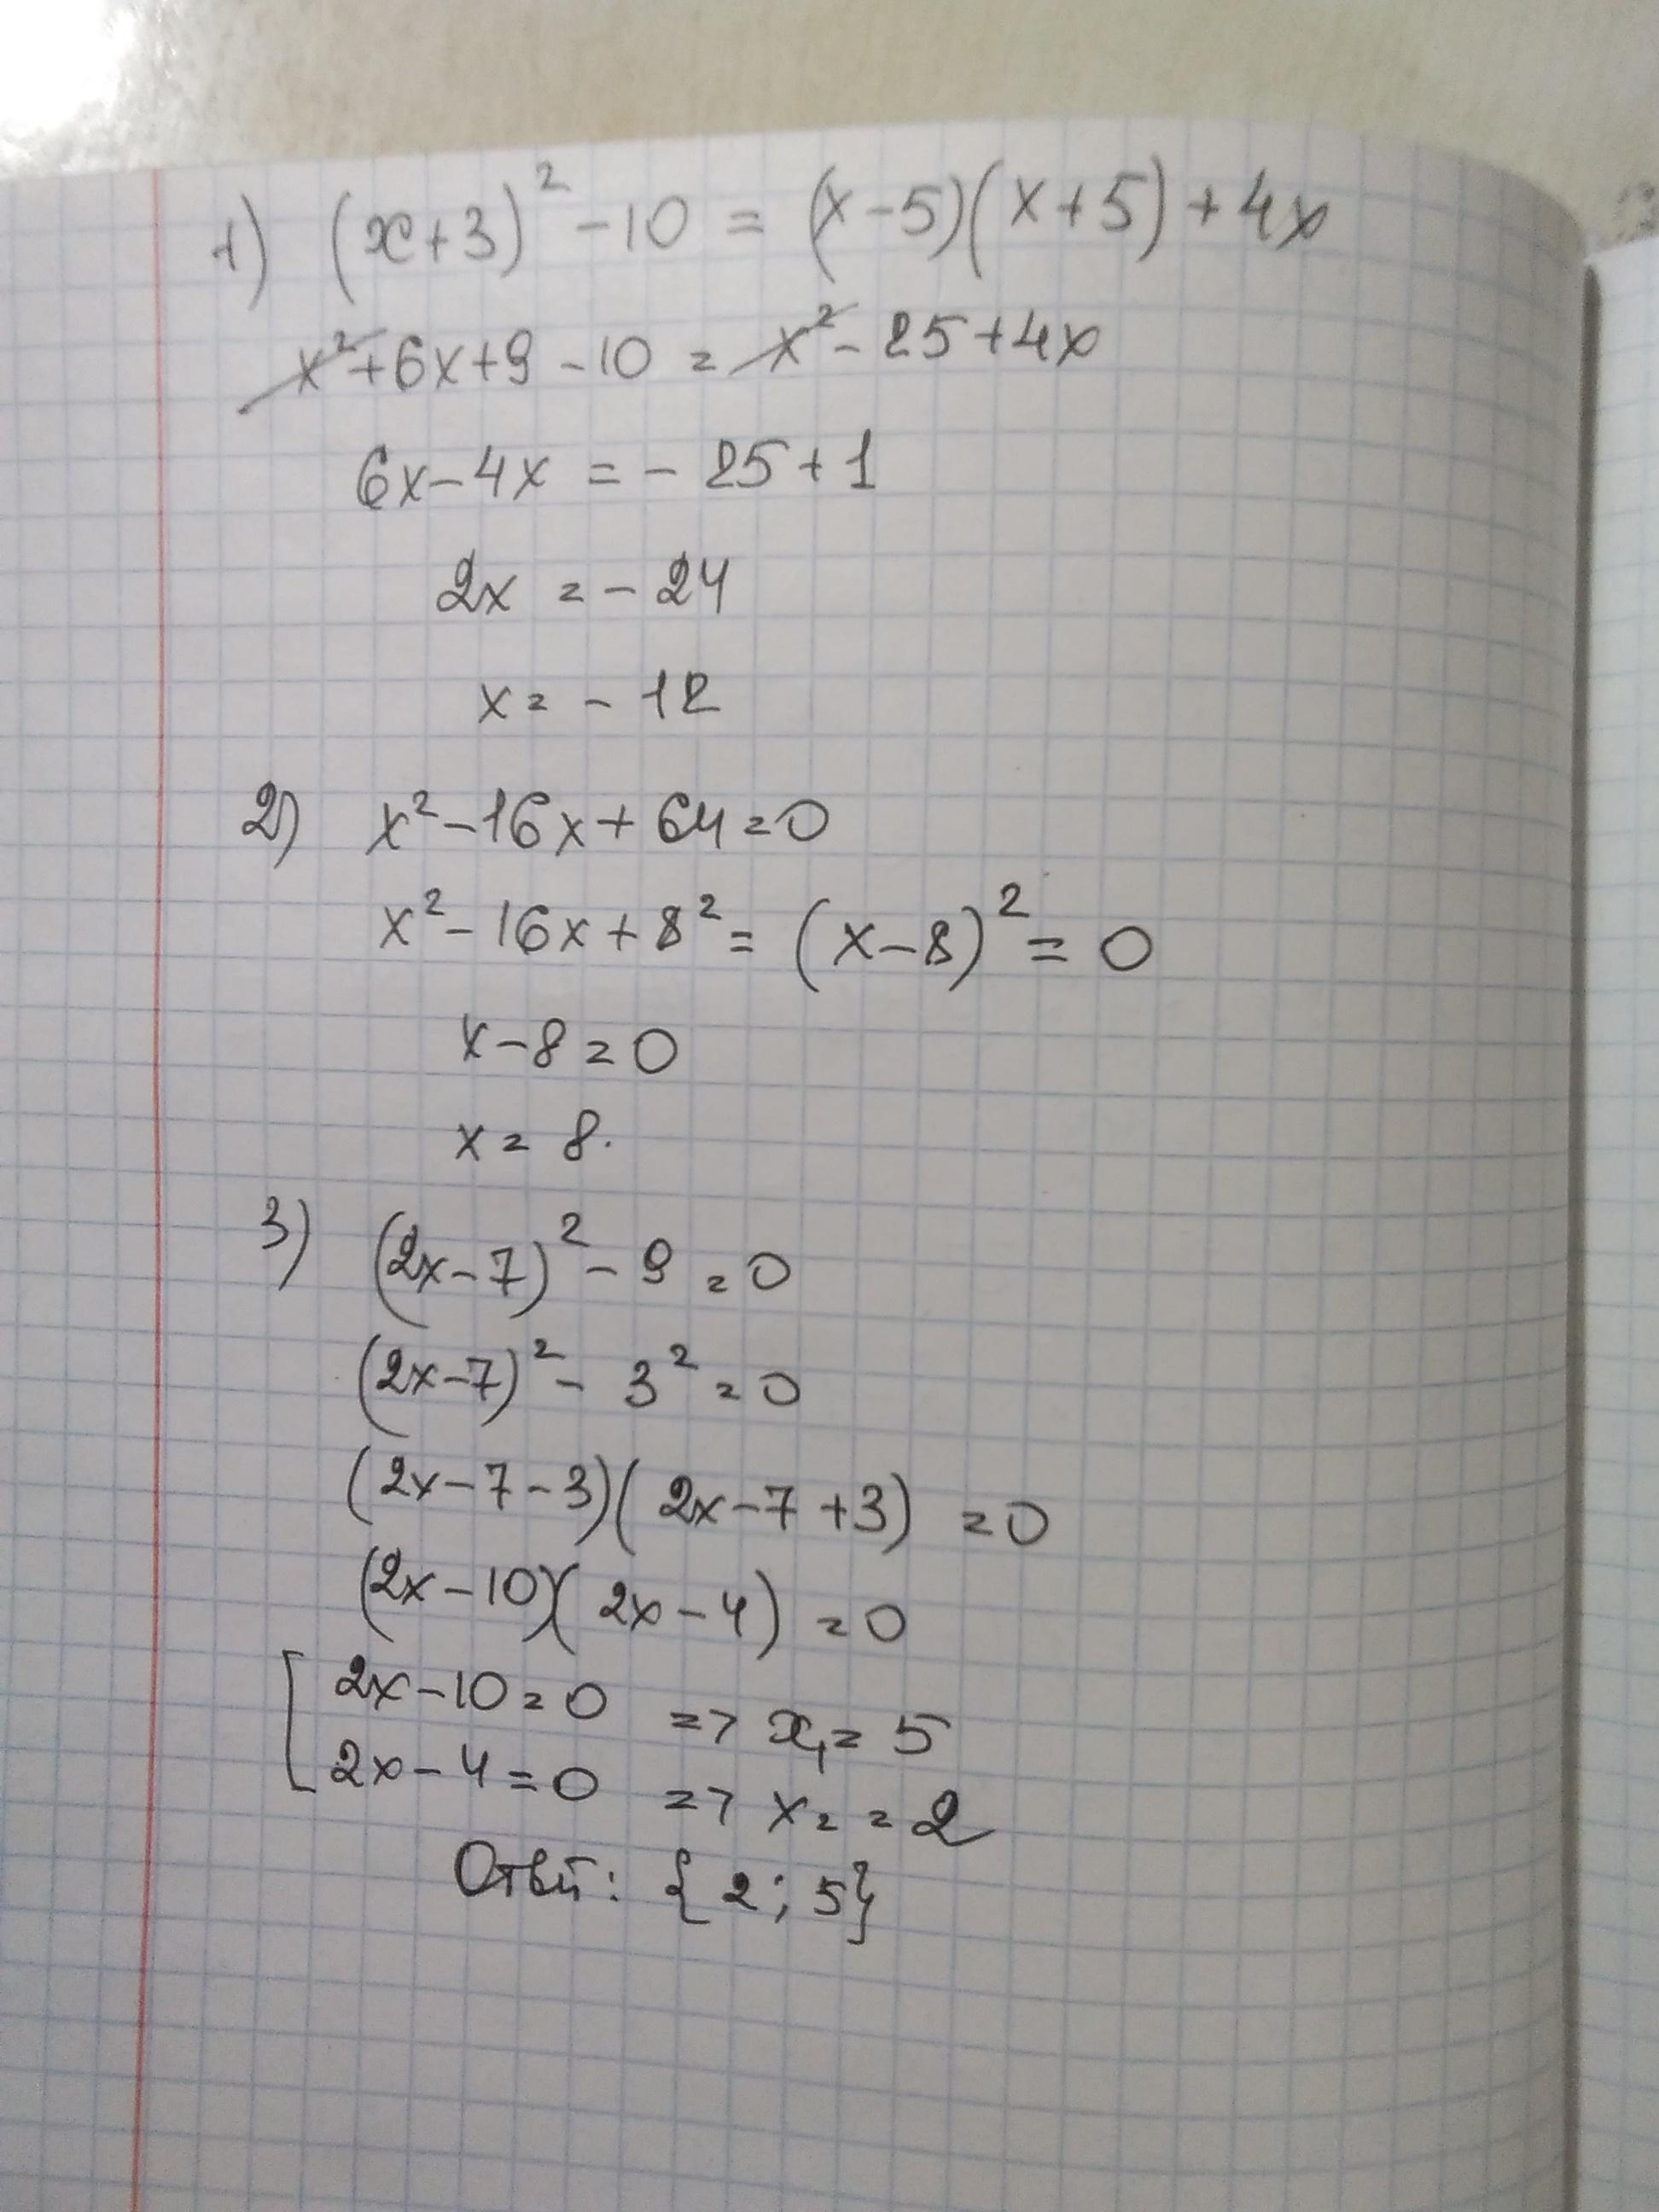 1) (x+3)² -10 = (x-5)(x+5)+4x
x²+6x+9-10 = x²-25+4x
6x-4x = -25+1
2x = -24
x = -12
2) x²-16x+64=0
x²-16x+8² = (x-8)² = 0
x-8=0
x = 8.
3) (2x-7)² - 9 = 0
(2x-7)² - 3² = 0
(2x-7-3)(2x-7+3) = 0
(2x-10)(2x-4) = 0
[2x-10=0 => x₁ = 5
2x-4=0 => x₂ = 2
Ответ: {2; 5}